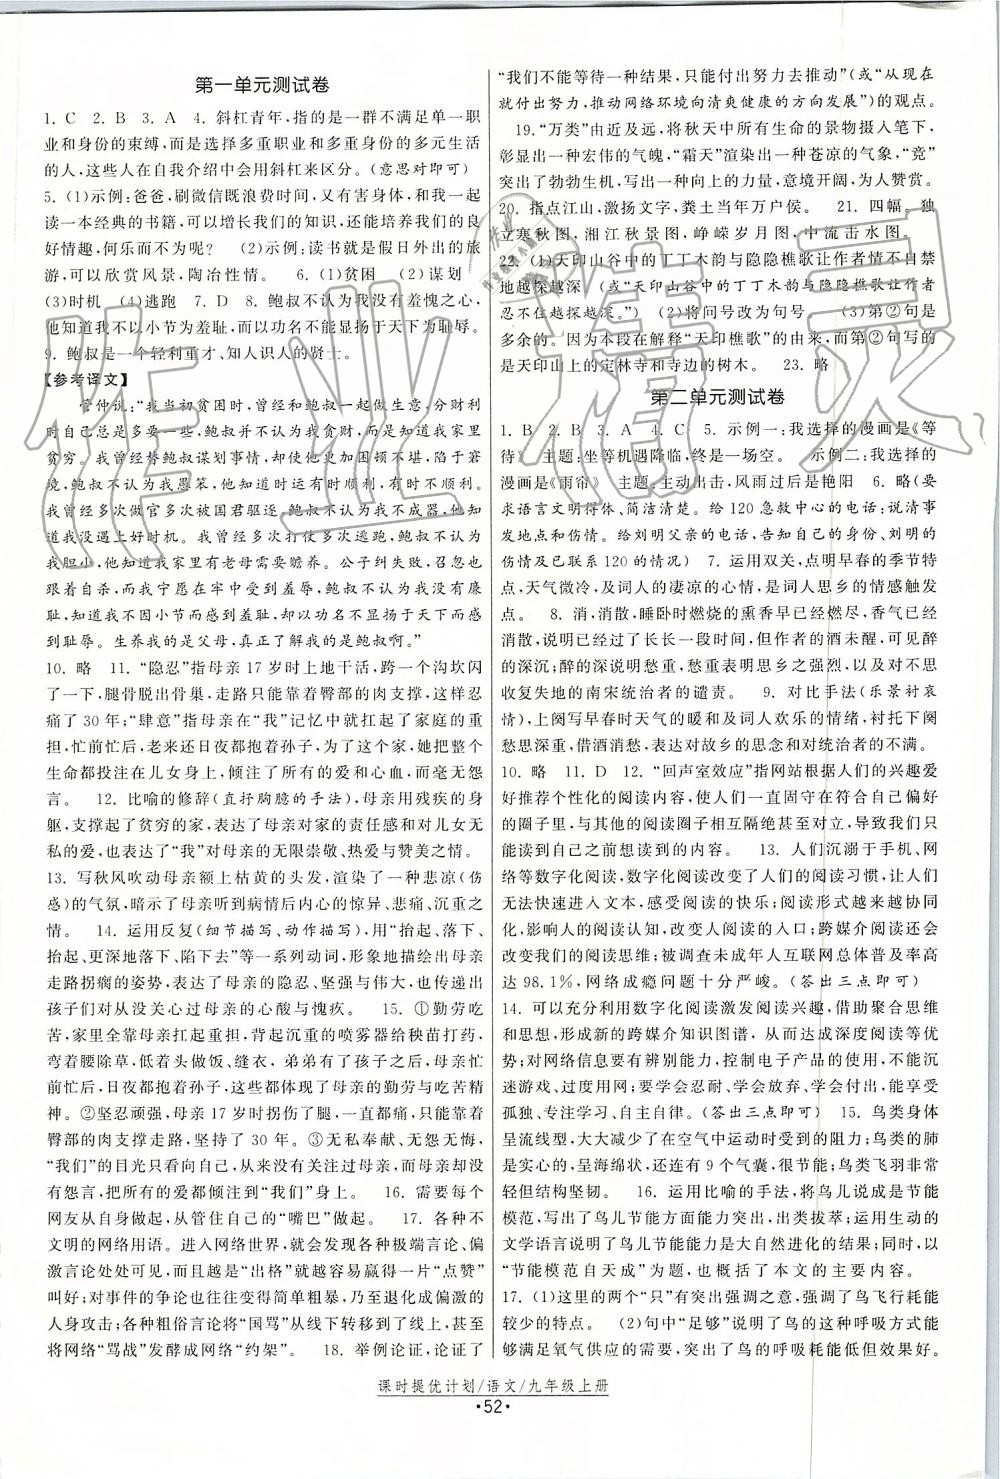 第一单元测试卷
1. C　2. B　3. A　4. 斜杠青年,指的是一群不满足单一职
业和身份的束缚,而是选择多重职业和多重身份的多元生活
的人,这些人在自我介绍中会用斜杠来区分。(意思对即可)
5. (1)示例:爸爸,刷微信既浪费时间,又有害身体,和我一起
读一本经典的书籍,可以增长我们的知识,还能培养我们的良
好情趣,何乐而不为呢?　(2)示例:读书就是假日外出的旅
游,可以欣赏风景,陶冶性情。　6. (1)贫困　(2)谋划
(3)时机　(4)逃跑　7. D　8. 鲍叔不认为我没有羞愧之心,
他知道我不以小节为羞耻,而以功名不能显扬于天下为耻辱。
9. 鲍叔是一个轻利重才、知人识人的贤士。
【参考译文】
管仲说:“我当初贫困时,曾经和鲍叔一起做生意,分财利
时自己总是多要一些,鲍叔并不认为我贪财,而是知道我家里
贫穷。我曾经替鲍叔谋划事情,却使他更加困顿不堪,陷于窘
境,鲍叔不认为我愚笨,他知道时运有时顺利,有时不顺利。
我曾经多次做官多次被国君驱逐,鲍叔不认为我没有才能,他知
道我没遇上好时机。我曾经多次打仗多次逃跑,鲍叔不认为
我胆小,他知道我家里有老母需要赡养。公子纠失败,召忽为
之而死,我宁愿在牢中受到羞辱,鲍叔不认为我没有羞愧之
心,知道我不因小节而感到羞耻,却以功名不显扬于天下而感
到耻辱。生养我的是父母,真正了解我的是鲍叔啊。”
10. 略　11. “隐忍”指母亲 17 岁时上地干活,跨一个沟坎闪
了一下,腿骨脱出骨巢,走路只能靠着臀部的肉支撑,这样忍
痛了 30 年;“肆意”指母亲在“我”记忆中就扛起了家庭的重
担,忙前忙后,老来还日夜都抱着孙子,为了这个家,她把整个
生命都投注在儿女身上,倾注了所有的爱和心血,而毫无怨
言。　12. 比喻的修辞(直抒胸臆的手法),母亲用残疾的身
躯,支撑起了贫穷的家,表达了母亲对家的责任感和对儿女无
私的爱,也表达了“我”对母亲的无限崇敬、热爱与赞美之情。
13. 写秋风吹动母亲额上枯黄的头发,渲染了一种悲凉(伤
感)的气氛,暗示了母亲听到病情后内心的惊异、悲痛、沉重之
情。　14. 运用反复(细节描写、动作描写),用“抬起、落下、
抬起、更深地落下、陷下去”等一系列动词,形象地描写了母亲
走路拐瘸的姿势,表达了母亲的隐忍、坚强与伟大,也传达出
孩子们对从没关心过母亲的心酸与愧疚。　15. ①勤劳吃
苦,家里全靠母亲扛起重担,背起沉重的喷雾器给秧苗打药,
弯着腰除草,低着头做饭、缝衣,弟弟有了孩子之后,母亲忙
前忙后,日夜都抱着孙子,这些都体现了母亲的勤劳与吃苦精
神。②坚忍顽强,母亲 17 岁时拐伤了腿,一直都痛,只能靠着
臀部的肉支撑走路,坚持了 30 年。③无私奉献、无怨无悔,
“我们”的目光只看向自己,从来没有关注过母亲,母亲却没
有怨言,把所有的爱都倾注到“我们”身上。　16. 需要每个
网友从自身做起,从管住自己的“嘴巴”做起。　17. 各种不
文明的网络用语。进入网络世界,就会发现各种极端言论、偏
激言论处处可见,而且越是“出格”就越容易赢得一片“点赞”
叫好;对事件的争论也往往变得简单粗暴,乃至成为偏激的
人身攻击;各种粗俗言论将“国骂”从线下转移到线上,甚至
将网络“骂战”发酵成网络“约架”。　18. 举例论证,论证了
“我们不能等待一种结果,只能付出努力去推动”(或“从现在
就付出努力,推动网络环境向清爽健康的方向发展”)的观点。
19. “万类”由近及远,将秋天中所有生命的景物摄入笔下,
彰显出一种宏伟的气魄,“霜天”渲染出一种苍凉的气象,“竞”
突出了勃勃生机,写出一种向上的力量,意境开阔,为人赞赏。
20. 指点江山,激扬文字,粪土当年万户侯。　21. 四幅。独
立寒秋图,湘江秋景图,峥嵘岁月图,中流击水图。
22. (1)天印山谷中的丁丁木韵与隐隐樵歌让作者情不自禁
地越探越深　(或“天印山谷中的丁丁木韵与隐隐樵歌使作者
忍不住越探越深。”)　(2)将问号改为句号　(3)第②句是
多余的。因为本段在解释“天印樵歌”的由来,而第②句写的
是天印山上的定林寺和寺边的树木。　23. 略
第二单元测试卷
1. B　2. B　3. A　4. C　5. 示例一:我选择的漫画是《等
待》　主题:坐等机遇降临,终是一场空。　示例二:我选择的
漫画是《雨帘》　主题:主动出击,风雨过后是艳阳　6. 略(要
求语言文明得体、简洁清楚。给 120 急救中心的电话,说清事
发地点和伤情。给刘明父亲的电话,告知自己的身份、刘明的
伤情及已联系 120 的情况)　7. 运用双关,点明早春的季节特
点,天气微冷,及词人的凄凉的心情,是词人思乡的情感触发
点。　8. 消,消散,睡卧时燃烧的熏香早已经燃尽,香气已经
消散,说明已经过了长长一段时间,但作者的酒未醒,可见醉
的深沉;醉的深沉说明愁重,愁重表明思乡之强烈,以及对不思
收复失地的南宋统治者的谴责。　9. 对比手法(乐景衬哀
情),上阕写早春时天气的暖和及词人欢乐的情绪,衬托下阕
愁思深重,借酒消愁,表达对故乡的思念和对统治者的不满。
10. 略　11. D　12. “回声室效应”指网站根据人们的兴趣爱
好推荐个性化的阅读内容,人们会一直固守在符合自己偏好
的圈子里,与其他的阅读圈子相互隔绝甚至对立,导致我们只
能读到自己之前想读到的内容。　13. 人们沉溺于手机、网
络等数字化阅读,数字化阅读改变了人们的阅读习惯,让人们
无法快速进入文本,感受阅读的快乐;阅读越来越协同
化,影响人的阅读认知,改变人阅读的入口;跨媒介阅读还会
改变我们的阅读思维;被调查未成年人互联网总体普及率高
达 98.1%,网络成瘾问题十分严峻。(答出三点即可)
14. 可以充分利用数字化阅读激发阅读兴趣,借助聚合思维
和思想,形成新的跨媒介知识图谱,从而达成深度阅读等优
势;对网络信息要有辨别能力,控制电子产品的使用,不能沉
迷游戏、过度用网;要学会忍耐、学会放弃、学会利用,能享受
孤独、专注学习、自主自律。(答出三点即可)　15. 鸟类身体
呈流线型,大大减少了在空气中运动时受到的阻力;鸟类的肺
是实心的,呈海绵状,还连有 9 个气囊,很节能;鸟类飞羽非常
轻但结构坚韧。　16. 运用比喻的手法,将鸟儿说成是节能
模范,写出了鸟儿节能能力突出,出类拔萃;运用生动的
文学语言说明了鸟儿节能能力是大自然进化的结果;同时,以
“节能模范自天成”为题,也概括了本文的主要内容。
17. (1)这里的两个“只”有突出强调之意,强调了鸟飞行耗能
较少的特点。　(2)句中“足够”说明了鸟的这种呼吸方式能
够满足氧气供应的需要,突出强调了鸟在呼吸方面耗能少。
课时提优计划/语文/九年级上册
·52·
作业精灵